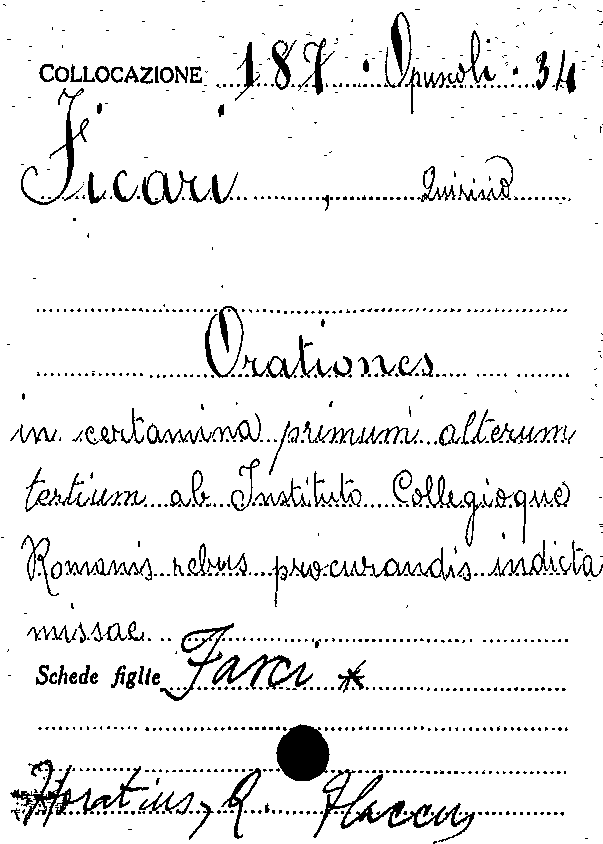 COLLOCAZIONE 187 . Opuscoli . 34
Ficari , Quirino
Orationes
in certamina primum alterum
tertium ab Instituto Collegioque
Romanis rebus procurandis indicta
missae
Schede figlie Farci *
Horatius, Q. Flaccus